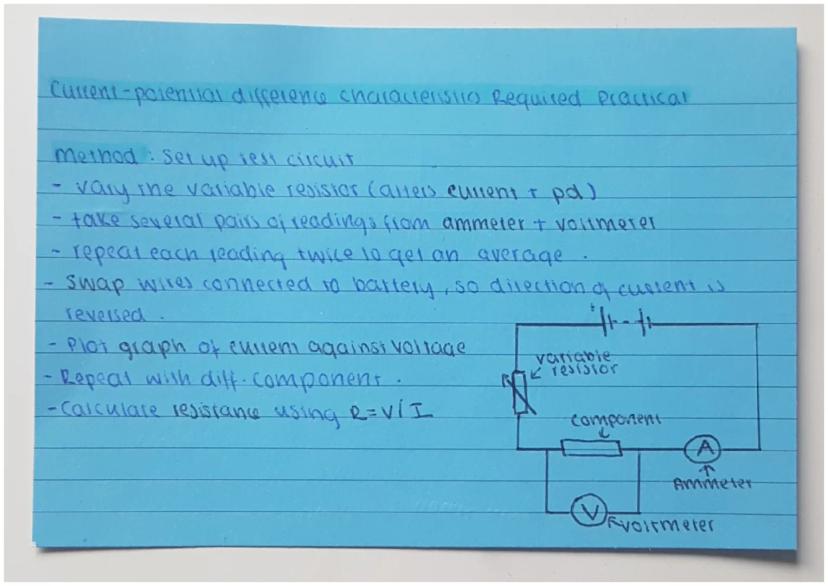 Current-potential difference characteristics Required Practical
Method: Set up test circuit
- vary the variable resistor (alters current + pd)
- take several pairs of readings from ammeter + voltmeter
- repeat each reading twice to get an average.
- swap wires connected to battery, so direction of current is
reversed.
- Plot graph of current against voltage
- Repeat with diff. component.
- Calculate resistance using R=V/I
+
variable
resistor
component
A
Ammeter
V
voltmeter